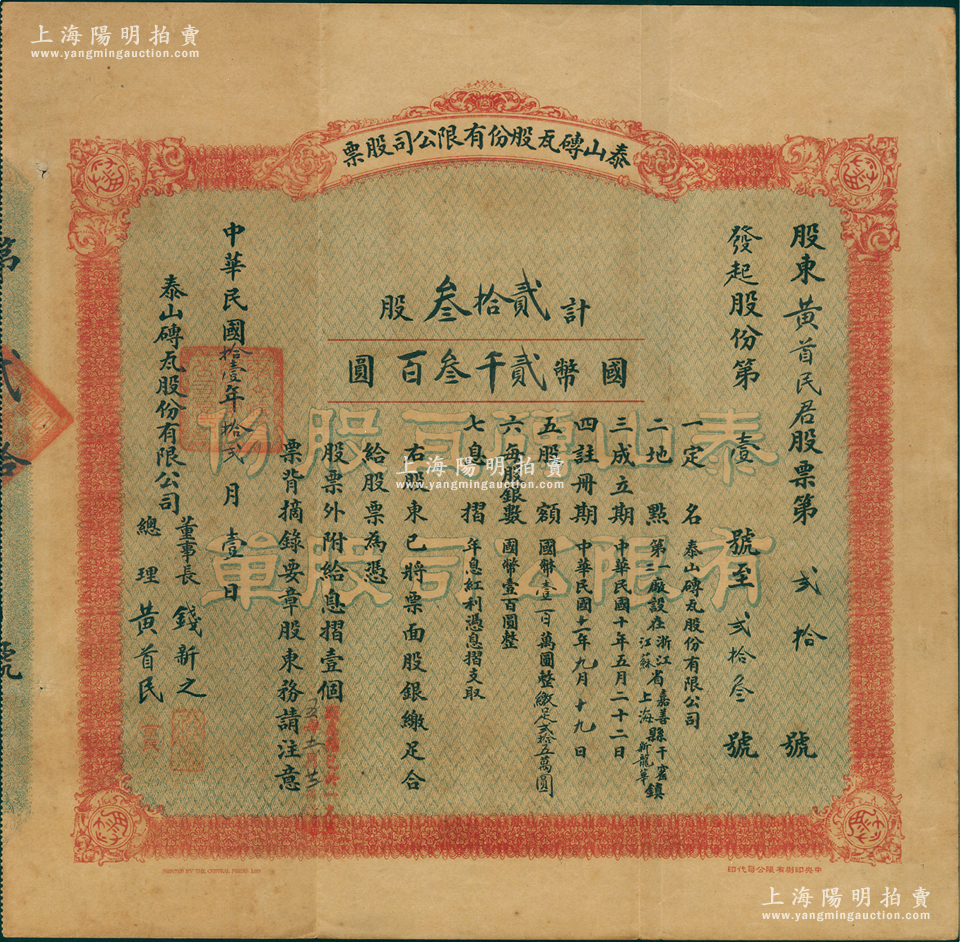 上海陽明拍賣
www.yangmingauction.com
泰山磚瓦股份有限公司股票
股東黃首民君股票第貳拾號
發起股份第壹號至貳拾叁號
計貳拾叁股
國幣貳千叁百圓
一定名 泰山磚瓦股份有限公司
二地點 第一廠設在浙江省嘉善縣干窰鎮
第二廠設在江蘇上海縣新龍華
三成立期 中華民國十年五月二十二日
四註冊期 中華民國十一年九月十九日
五股額 國幣壹百萬圓整繳足貳拾五萬圓
六每股銀數 國幣壹百圓整
七息摺 年息紅利憑息摺支取
右股東已將票面股銀繳足合
給股票為憑
股票外附給息摺壹個
票背摘錄要章股東務請注意
中華民國拾壹年拾貳月壹日
泰山磚瓦股份有限公司
董事長 錢新之
總理 黃首民
第貳拾號
泰山磚瓦股份
有限公司股單
上海陽明拍賣
www.yangmingauction.com
PRINTED BY THE CENTRAL PRESS LTD
中央印刷有限公司代印
上海陽明拍賣
www.yangmingauction.com